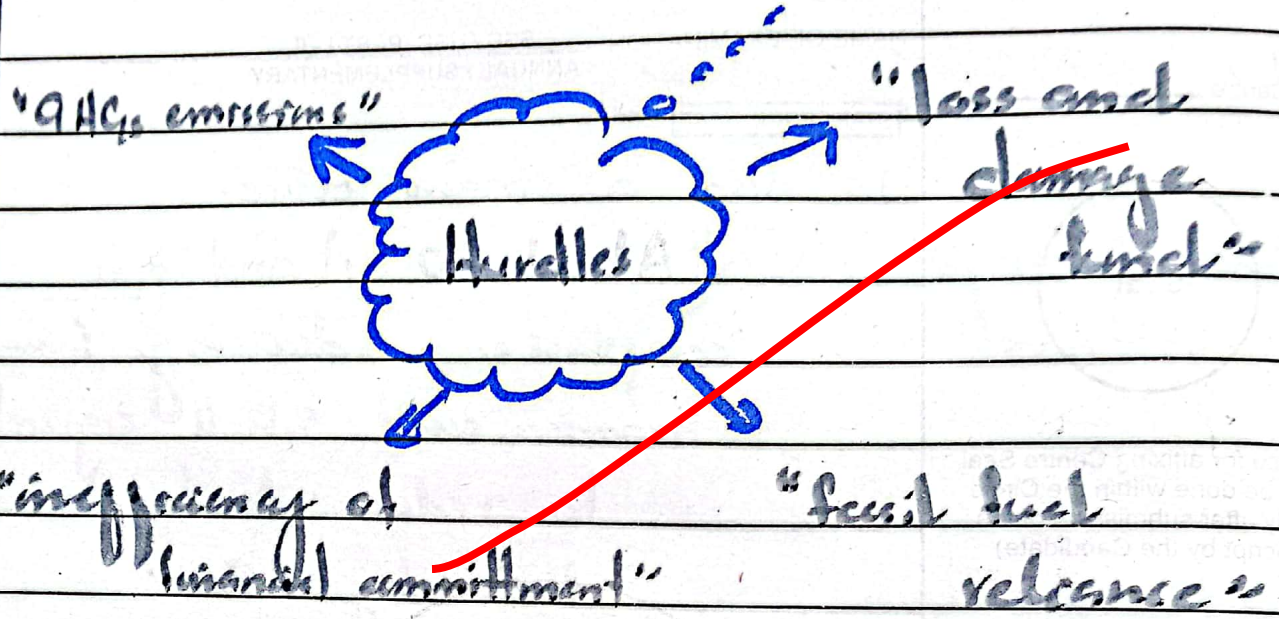 "GHGs emissions"
"loss and
damage
fund"
Hurdles
"inefficiency of
financial committment"
"fossil fuel
relience"